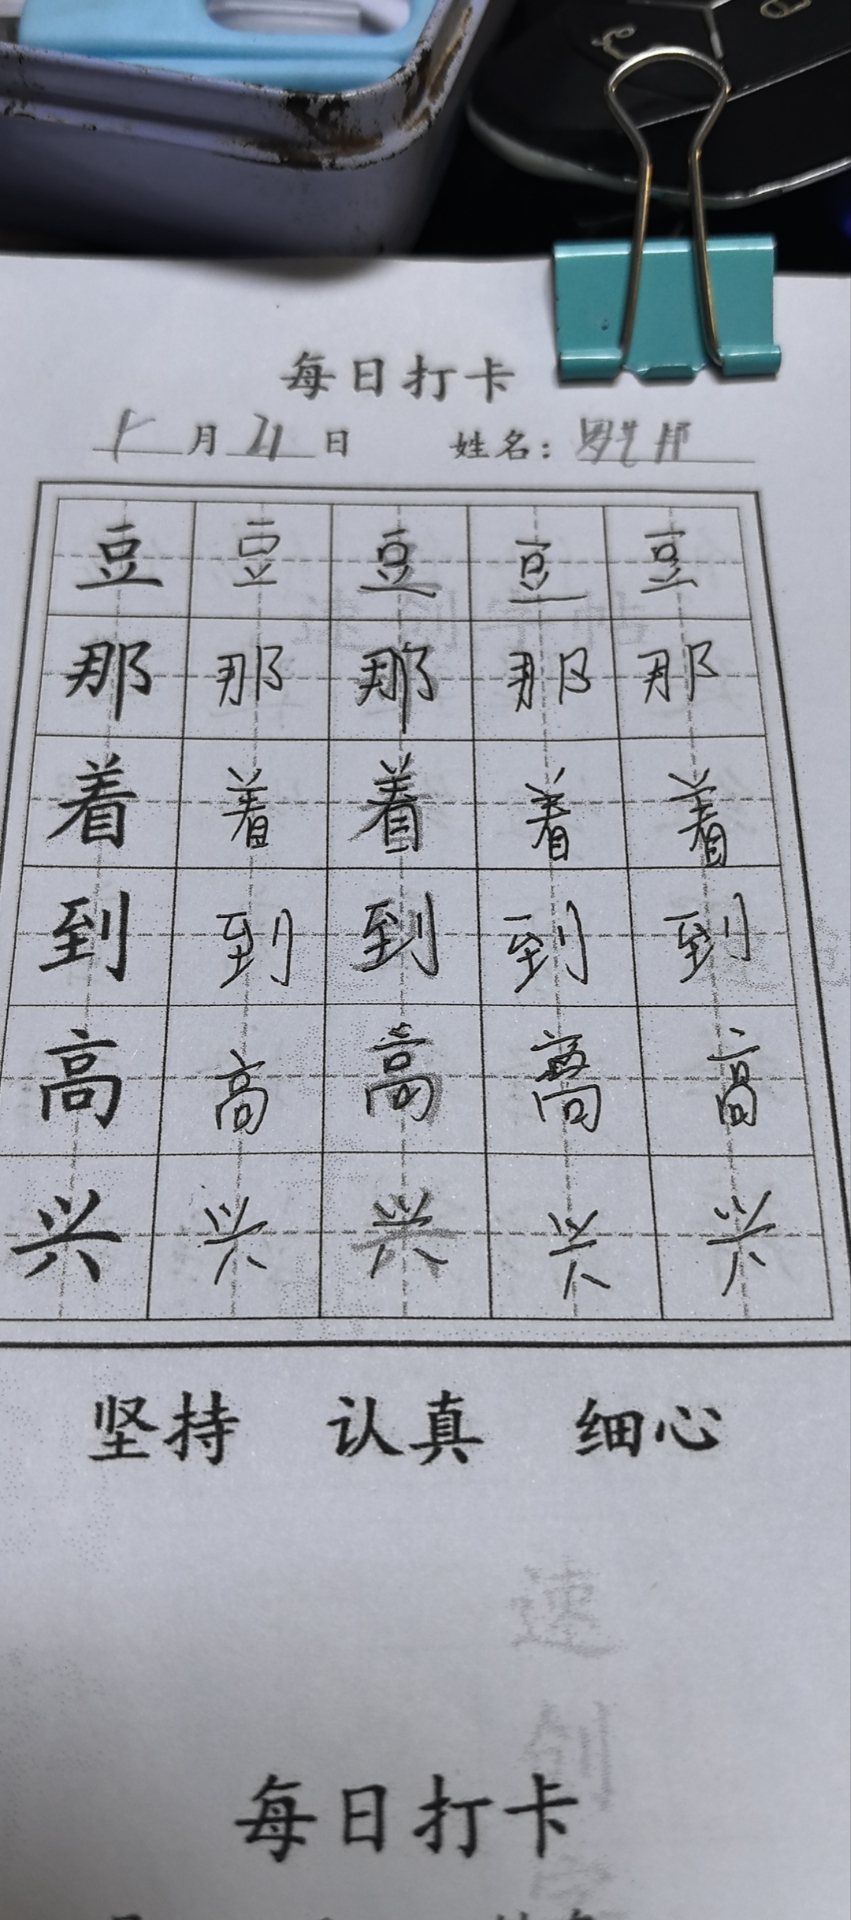 每日打卡
月 21 日 姓名：
豆 豆 豆 豆 豆
那 那 那 那 那
着 着 着 着 着
到 到 到 到 到
高 高 高 高 高
兴 兴 兴 兴 兴
坚持 认真 细心
每日打卡